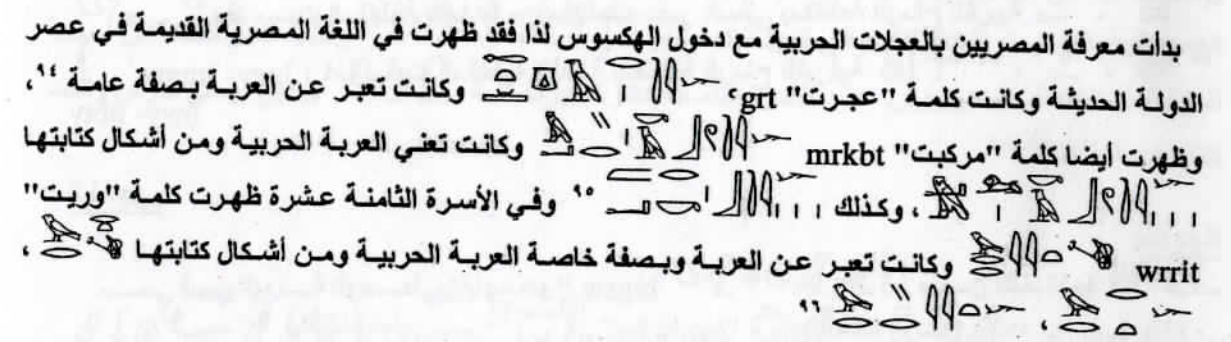 بدأت معرفة المصريين بالعجلات الحربية مع دخول الهكسوس لذا فقد ظهرت في اللغة المصرية القديمة في عصر
الدولة الحديثة وكانت كلمة "عجرت" grt ʿ وكانت تعبر عن العربة بصفة عامة ٩٤ ،
وظهرت أيضا كلمة "مركبت" mrkbt وكانت تعني العربة الحربية ومن أشكال كتابتها
، وكذلك ٩٥ وفي الأسرة الثامنة عشرة ظهرت كلمة "وريت"
wrrit وكانت تعبر عن العربة وبصفة خاصة العربة الحربية ومن أشكال كتابتها ،
، ٩٦